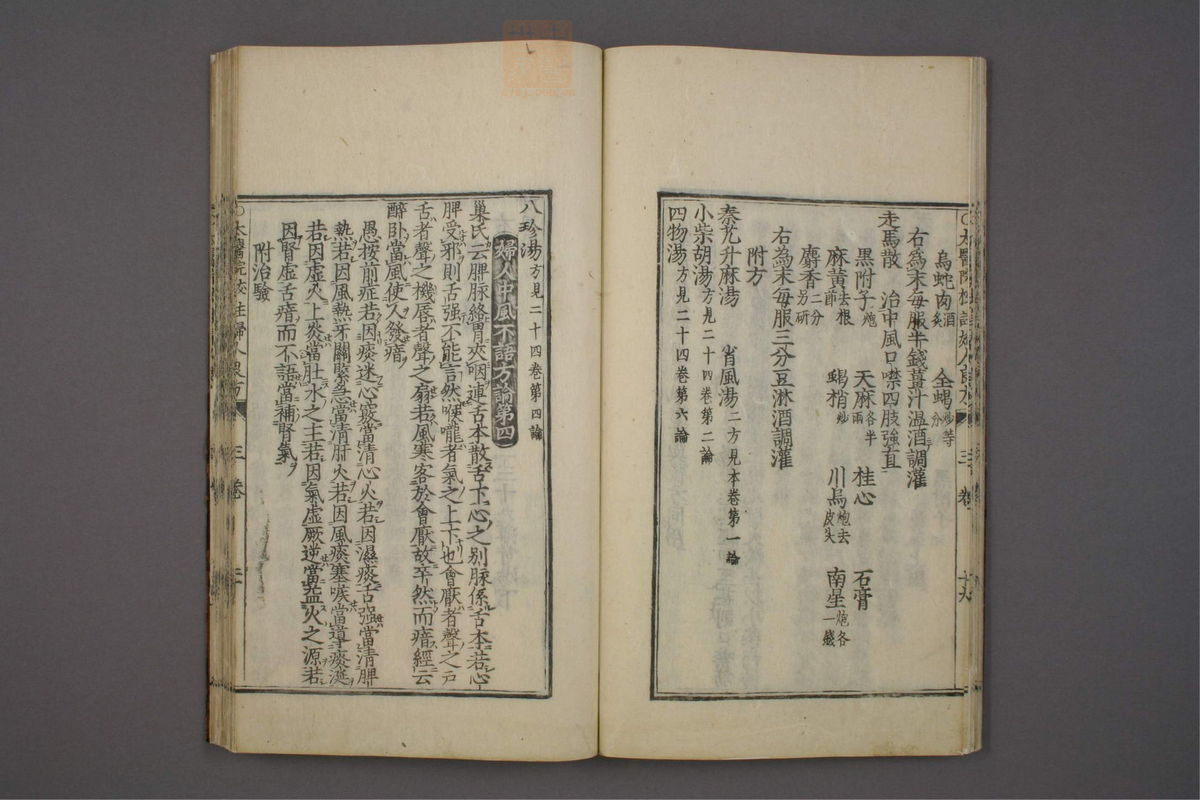 烏蛇肉酒炙 全蝎炒等分
右為末每服半錢薑汁溫酒調灌
走馬散 治中風口噤四肢強直
黑附子炮 天麻各半兩 桂心 石膏
麻黃去根節 蝎梢炒 川烏炮去皮頭 南星炮各一錢
麝香二分另研
右為末每服三分豆淋酒調灌
附方
秦艽升麻湯 省風湯二方見本卷第一論
小柴胡湯方見二十四卷第二論
四物湯方見二十四卷第六論
八珍湯方見二十四卷第四論
婦人中風不語方論第四
巢氏云脾脉絡胃夾咽連舌本散舌下心之別脉係舌本若心
脾受邪則舌强不能言然喉嚨者氣之上下也會厭者聲之戶
舌者聲之機唇者聲之扇若風寒客於會厭故卒然而瘖經云
醉卧當風使人發瘖
愚按前症若因痰迷心竅當清心火若因濕痰舌强當清脾
熱若因風熱牙關緊急當清肝火若因風痰塞喉當導痰涎
若因虛火上炎當壯水之主若因氣虛厥逆當益火之源若
因腎虛舌瘖而不語當補腎氣
附治驗
太醫院校註婦人良方 三卷 二十